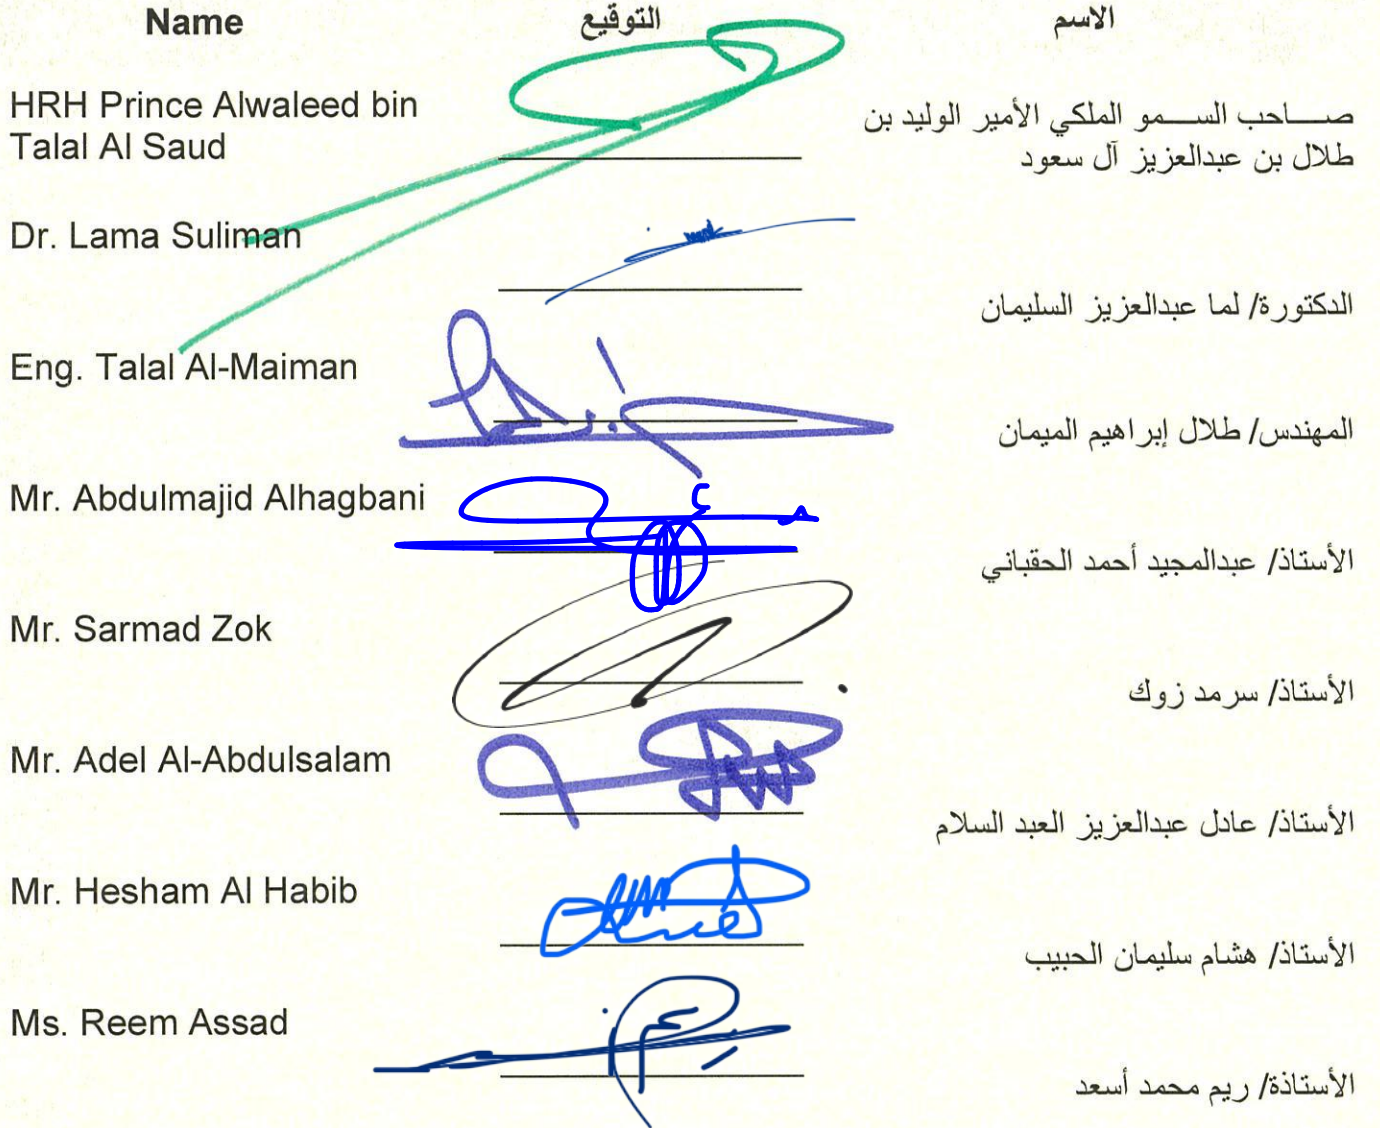 Name التوقيع الاسم
HRH Prince Alwaleed bin
Talal Al Saud
صـــاحب الســـمو الملكي الأمير الوليد بن
طلال بن عبدالعزيز آل سعود
Dr. Lama Suliman
الدكتورة/ لما عبدالعزيز السليمان
Eng. Talal Al-Maiman
المهندس/ طلال إبراهيم الميمان
Mr. Abdulmajid Alhagbani
الأستاذ/ عبدالمجيد أحمد الحقباني
Mr. Sarmad Zok
الأستاذ/ سرمد زوك
Mr. Adel Al-Abdulsalam
الأستاذ/ عادل عبدالعزيز العبد السلام
Mr. Hesham Al Habib
الأستاذ/ هشام سليمان الحبيب
Ms. Reem Assad
الأستاذة/ ريم محمد أسعد